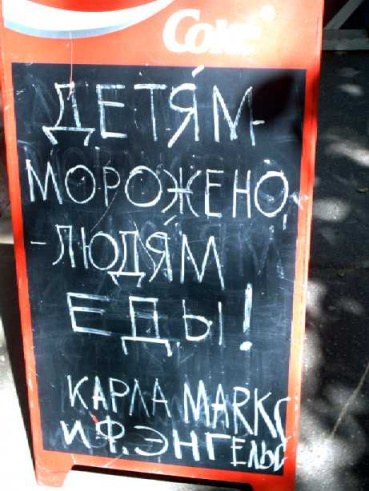 Coke
ДЕТЯ́М-
МОРОЖЕНО,
-ЛЮДЯ́М
ЕДЫ!
КАРЛА MARKS
И Ф.ЭНГЕЛЬС